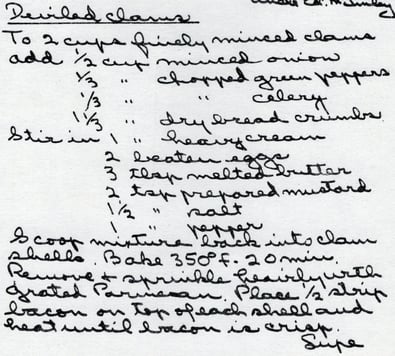 Deviled clams
To 2 cups finely minced clams
add 1/2 cup minced onion
1/3 " chopped green peppers
1/3 " " celery
1 1/3 " dry bread crumbs.
Stir in 1 " heavy cream
2 beaten eggs
3 tbsp melted butter
2 tsp prepared mustard
1 1/2 " salt
1 " pepper
Scoop mixture back into clam
shells. Bake 350° f. 20 min.
Remove & sprinkle heavily with
grated Parmesan. Place 1/2 strip
bacon on top of each shell and
heat until bacon is crisp.